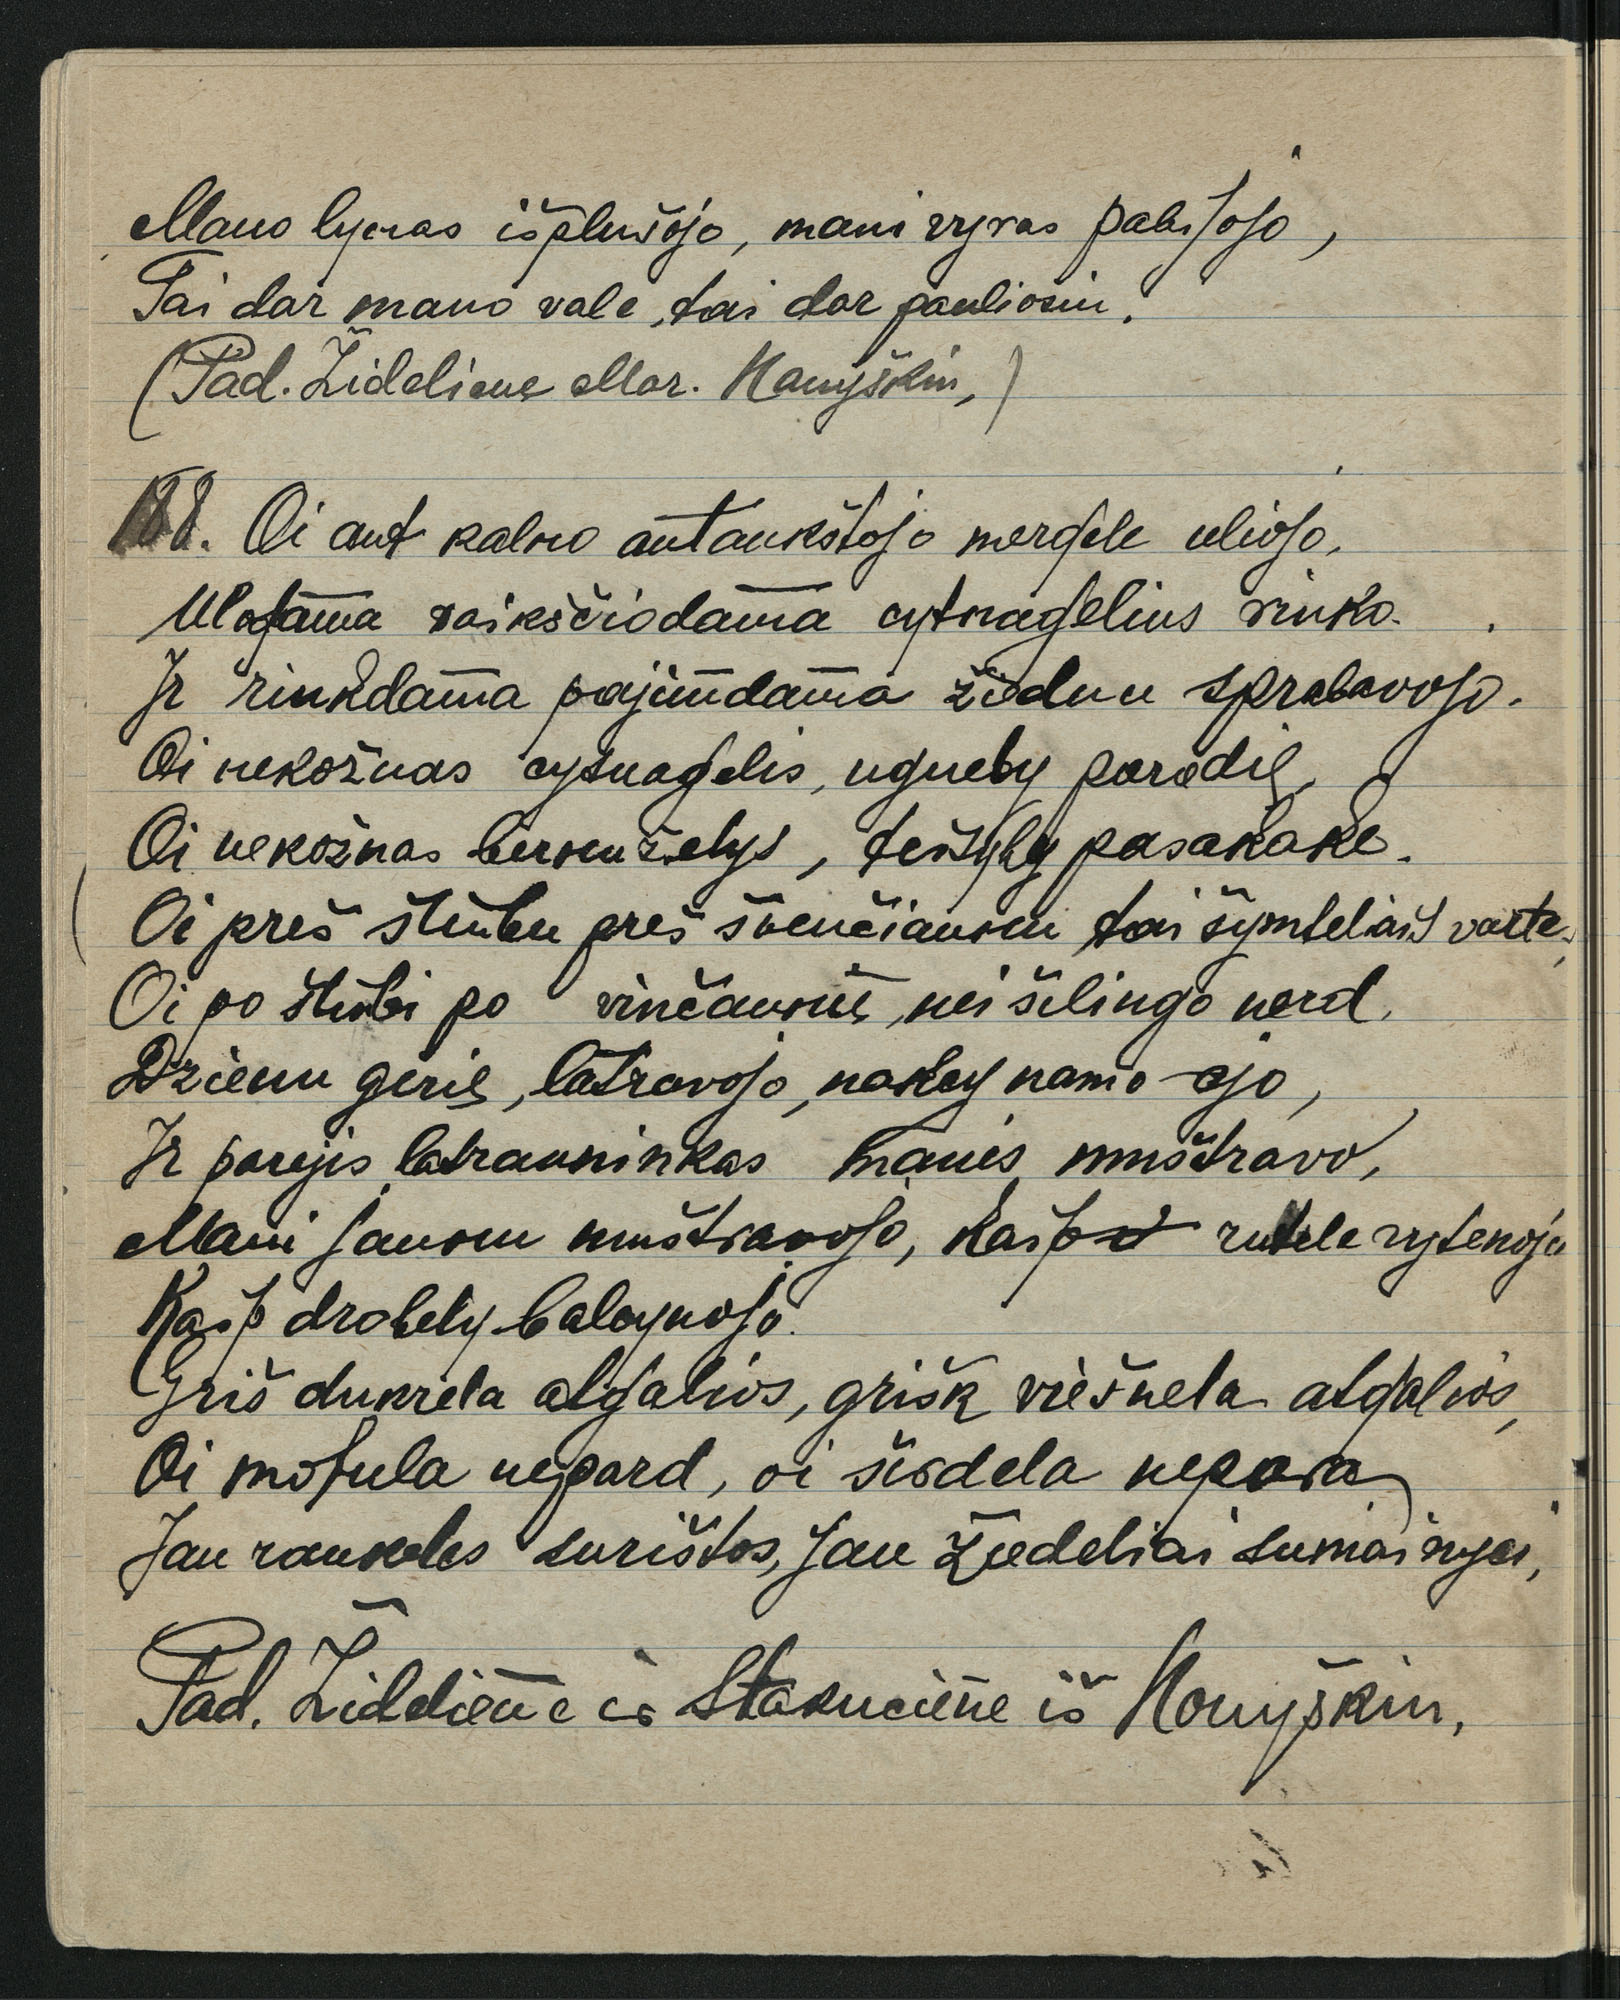 Mano lynas išplušojo, mani vyras pabijojo,
Tai dar mano vale, tai dar pauliosiu.
(Pad. Žideliene Mar. Kanyškin,)
188. Oi ant kalno antaukštojo mergele uliojo,
Ulogama vaikščiodama cytnagelius rinko.
Ir rinkdama pajimdama žiedun sprabavojo.
Oi nekožnas cytnagelis, ugnely parodie,
Oi nekožnas bernuželys, teisyby pasakake.
Oi preš šlūbu preš švenčiavoni tai šymteliais varte,
Oi po šlūbi po vinčavonie, nei šilingo nerd.
Dzienu gerie, latravojo, nakey namo ejo,
Ir parejis latrauninkas manis muštravo,
Mani jaunu muštravojo, kaip rutele vytenoja
Kaip drobely balaynojo.
Griš dukrela atgalios, grišk viešnela atgalios,
Oi motula nepard, oi širdela nepara
Jau rankeles surištos, jau žiedeliai sumainyei,
Pad. Žideliene is Stakneiene iš Konyškin.